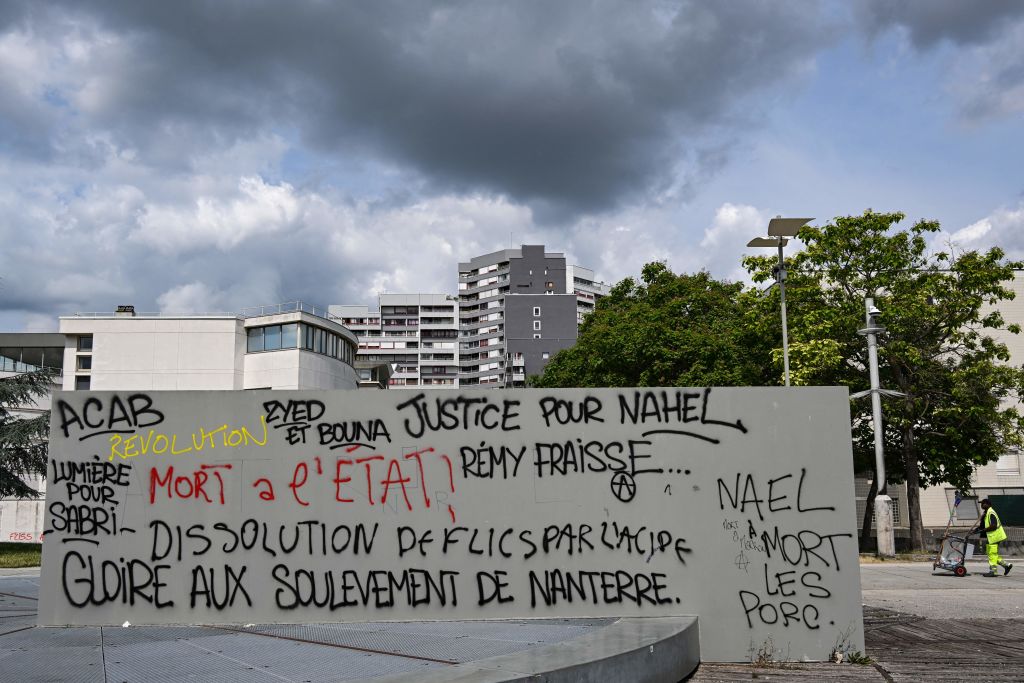 ACAB
REVOLUTION
ZYED
ET BOUNA
JUSTICE POUR NAHEL
LUMIÈRE
POUR
SABRI
MORT a l'ÉTAT!
RÉMY FRAISSE...
DISSOLUTION DE FLICS PAR L'ACIDE
GLOIRE AUX SOULEVEMENT DE NANTERRE.
NAEL
À
MORT
LES
PORC.